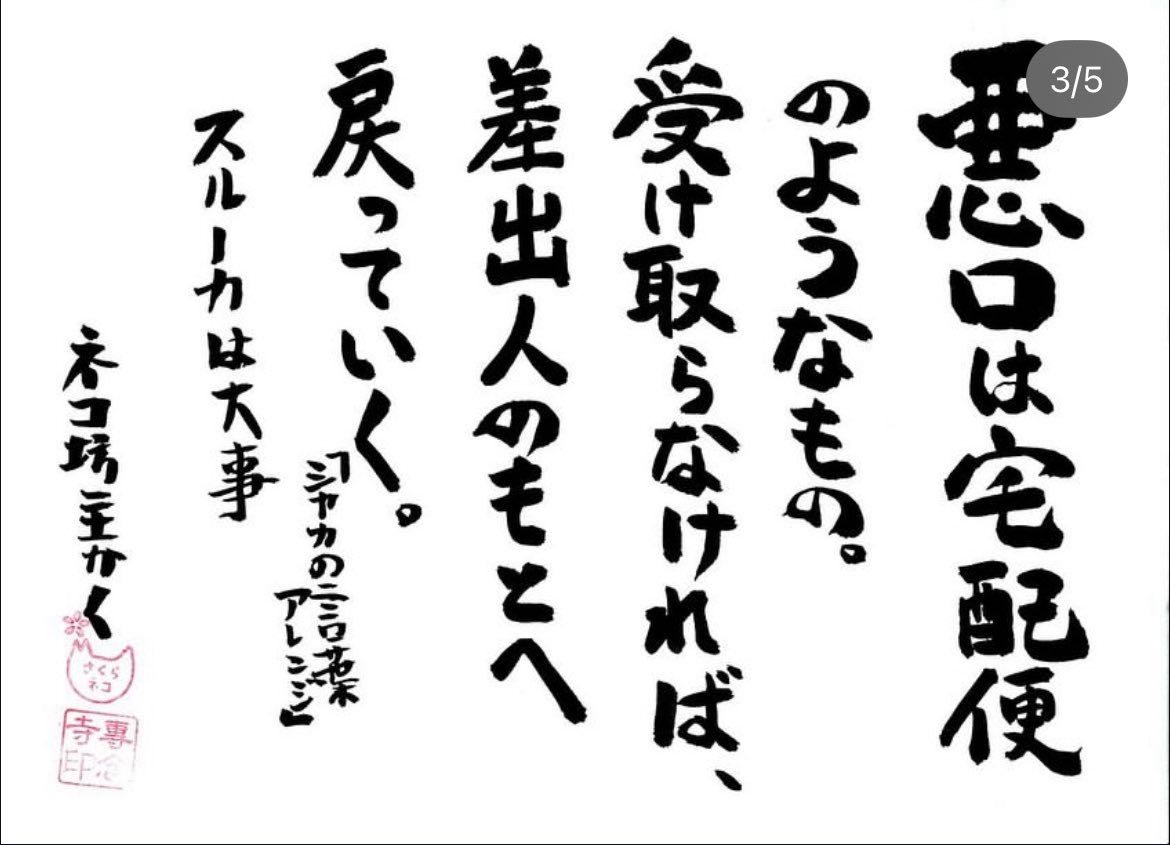 悪口は宅配便
のようなもの。
受け取らなければ、
差出人のもとへ
戻っていく。
「シャカの言葉
アレンジ」
スルーカは大事
ネコ坊主かく
さくら
ネコ
專念
寺印
3/5